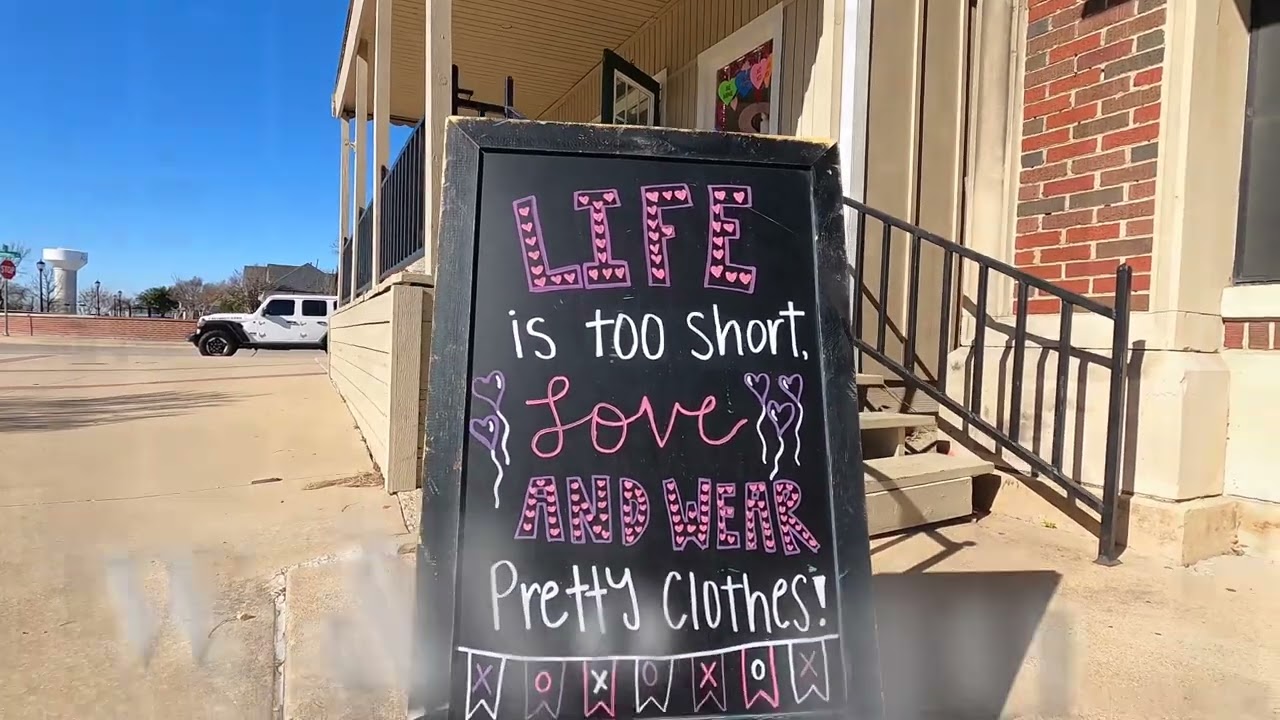 LIFE
is too short.
Love
AND WEAR
Pretty Clothes!
X O X O X O X